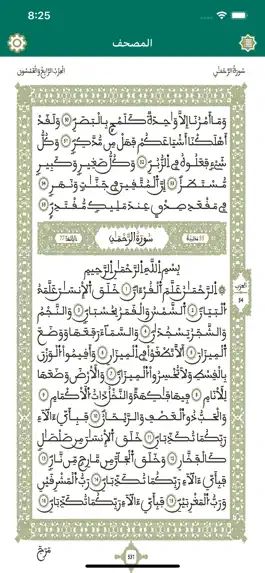 8:25
المصحف
سُورَةُ الرَّحْمَٰنِ
الحزب الرابع والخمسون
وَمَآ أَمْرُنَآ إِلَّا وَٰحِدَةٌ كَلَمْحٍۢ بِالْبَصَرِ 50 وَلَقَدْ
أَهْلَكْنَآ أَشْيَاعَكُمْ فَهَلْ مِن مُّدَّكِرٍ 51 وَكُلُّ
شَيْءٍ فَعَلُوهُ فِي الزُّبُرِ 52 وَكُلُّ صَغِيرٍ وَكَبِيرٍ
مُّسْتَطَرٌ 53 إِنَّ الْمُتَّقِينَ فِي جَنَّٰتٍ وَنَهَرٍ 54
فِي مَقْعَدِ صِدْقٍ عِندَ مَلِيكٍ مُّقْتَدِرٍ 55
مدنية
سُورَةُ الرَّحْمَٰنِ
آياتها 77
بِسْمِ اللَّهِ الرَّحْمَٰنِ الرَّحِيمِ
الرَّحْمَٰنُ عَلَّمَ الْقُرْءَانَ 1 خَلَقَ الْإِنسَٰنَ عَلَّمَهُ
الْبَيَانَ 2 الشَّمْسُ وَالْقَمَرُ بِحُسْبَانٍ 3 وَالنَّجْمُ
وَالشَّجَرُ يَسْجُدَٰنِ 4 وَالسَّمَآءَ رَفَعَهَا وَوَضَعَ
الْمِيزَانَ 5 أَلَّا تَطْغَوْا فِي الْمِيزَانِ 6 وَأَقِيمُوا الْوَزْنَ
بِالْقِسْطِ وَلَا تُخْسِرُوا الْمِيزَانَ 7 وَالْأَرْضَ وَضَعَهَا
لِلْأَنَامِ 8 فِيهَا فَٰكِهَةٌ وَالنَّخْلُ ذَاتُ الْأَكْمَامِ 9
وَالْحَبُّ ذُو الْعَصْفِ وَالرَّيْحَانُ 10 فَبِأَيِّ ءَالَآءِ
رَبِّكُمَا تُكَذِّبَانِ 11 خَلَقَ الْإِنسَٰنَ مِن صَلْصَٰلٍ
كَالْفَخَّارِ 12 وَخَلَقَ الْجَآنَّ مِن مَّارِجٍ مِّن نَّارٍ 13
فَبِأَيِّ ءَالَآءِ رَبِّكُمَا تُكَذِّبَانِ 14 رَبُّ الْمَشْرِقَيْنِ
وَرَبُّ الْمَغْرِبَيْنِ 15 فَبِأَيِّ ءَالَآءِ رَبِّكُمَا تُكَذِّبَانِ 16
الحزب
54
531
مَرَجَ